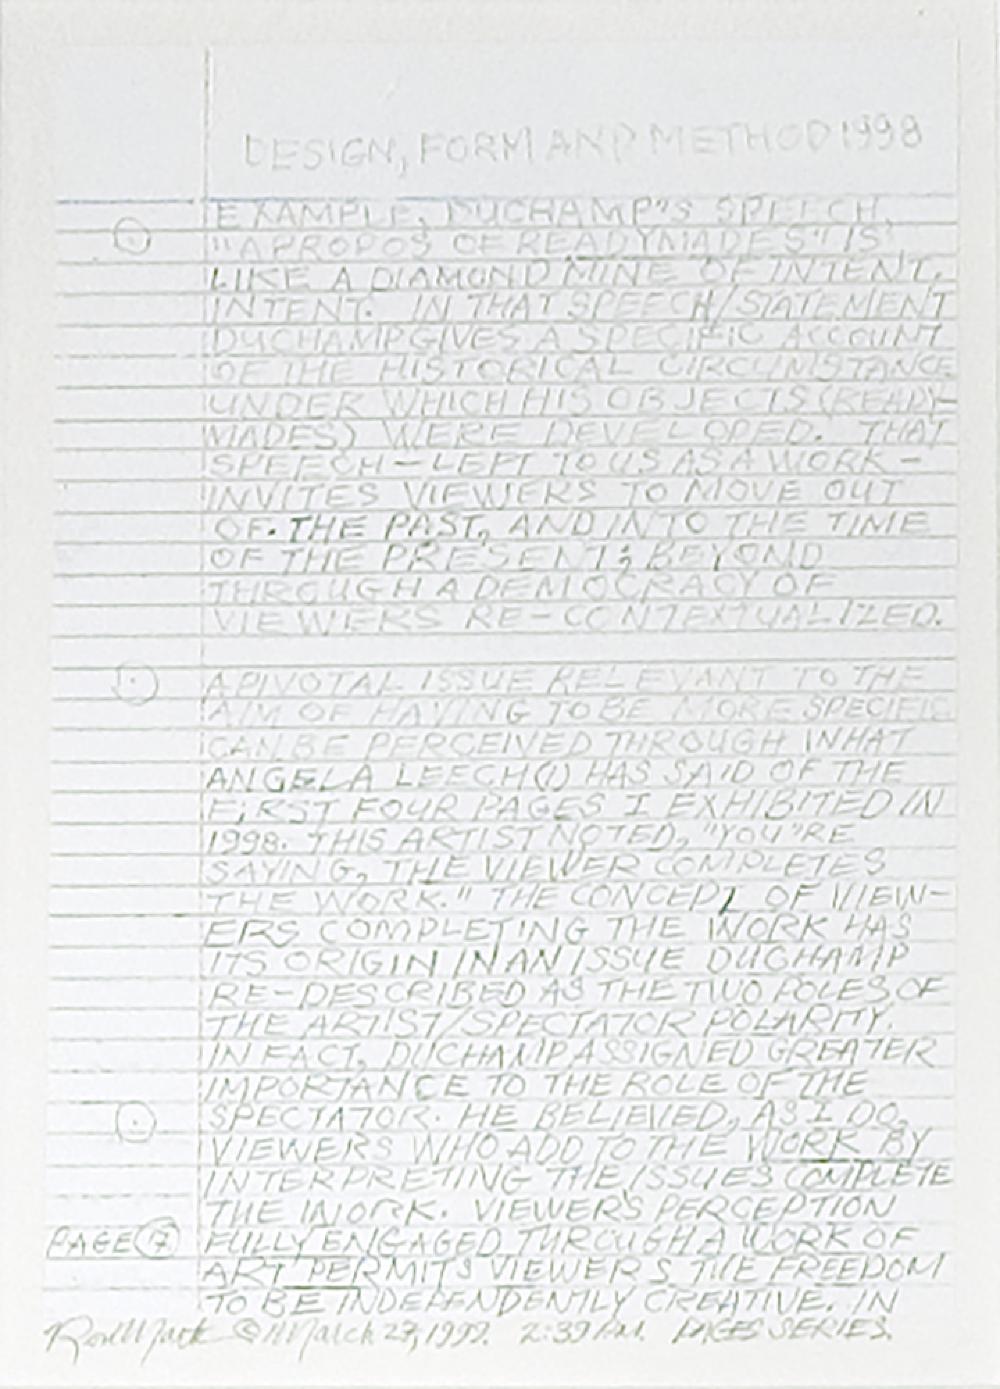 DESIGN, FORM AND METHOD 1998
EXAMPLE, DUCHAMP"S SPEECH,
"APROPOS OF READYMADES" IS
LIKE A DIAMOND MINE OF INTENT.
INTENT. IN THAT SPEECH/STATEMENT
DUCHAMP GIVES A SPECIFIC ACCOUNT
OF THE HISTORICAL CIRCUMSTANCE
UNDER WHICH HIS OBJECTS (READY-
MADES) WERE DEVELOPED. THAT
SPEECH - LEFT TO US AS A WORK -
INVITES VIEWERS TO MOVE OUT
OF. THE PAST, AND INTO THE TIME
OF THE PRESENT; BEYOND
THROUGH A DEMOCRACY OF
VIEWERS RE-CONTEXTUALIZED.
A PIVOTAL ISSUE RELEVANT TO THE
AIM OF HAVING TO BE MORE SPECIFIC
CAN BE PERCEIVED THROUGH WHAT
ANGELA LEECH(1) HAS SAID OF THE
FIRST FOUR PAGES I EXHIBITED IN
1998. THIS ARTIST NOTED, "YOU"RE
SAYING, THE VIEWER COMPLETES
THE WORK." THE CONCEPT OF VIEW-
ERS COMPLETING THE WORK HAS
ITS ORIGIN IN AN ISSUE DUCHAMP
RE-DESCRIBED AS THE TWO POLES OF
THE ARTIST/SPECTATOR POLARITY.
IN FACT, DUCHAMP ASSIGNED GREATER
IMPORTANCE TO THE ROLE OF THE
SPECTATOR. HE BELIEVED, AS I DO,
VIEWERS WHO ADD TO THE WORK BY
INTERPRETING THE ISSUES COMPLETE
THE WORK. VIEWER'S PERCEPTION
PAGE 7 FULLY ENGAGED THROUGH A WORK OF
ART PERMITS VIEWERS THE FREEDOM
TO BE INDEPENDENTLY CREATIVE. IN
© March 27, 1999. 2:39 P.M. PAGES SERIES.